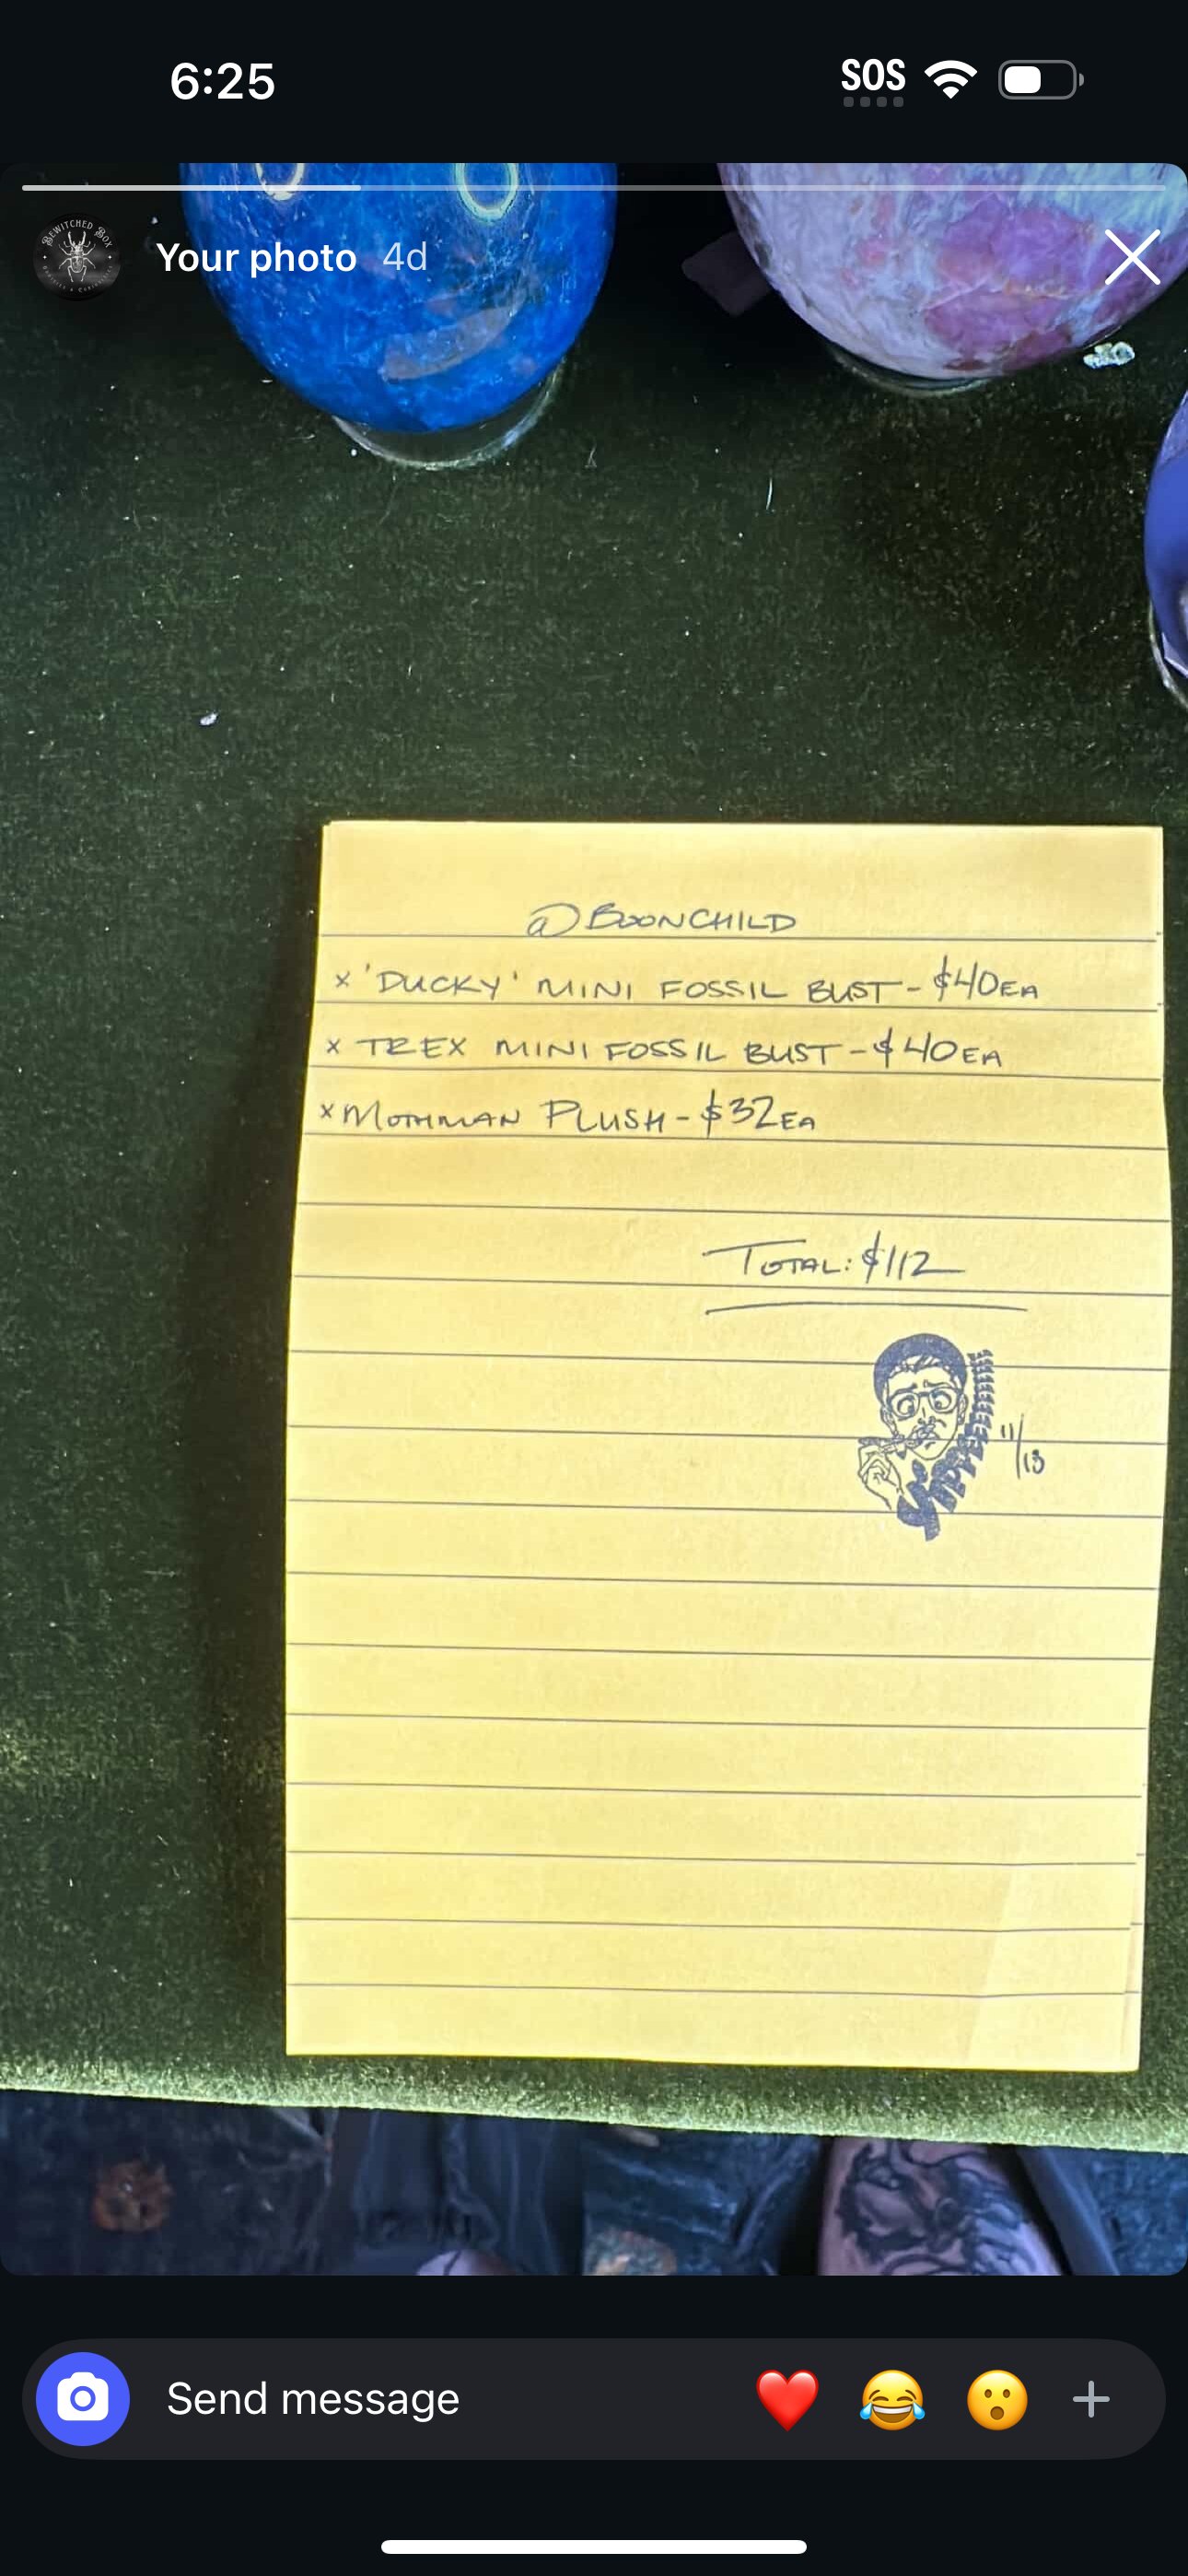 6:25
SOS
BEWITCHED BOX
Your photo 4d
@BOONCHILD
x 'DUCKY' MINI FOSSIL BUST - $40EA
x TREX MINI FOSSIL BUST - $40EA
x MOTHMAN PLUSH - $32EA
TOTAL: $112
11/13
Send message